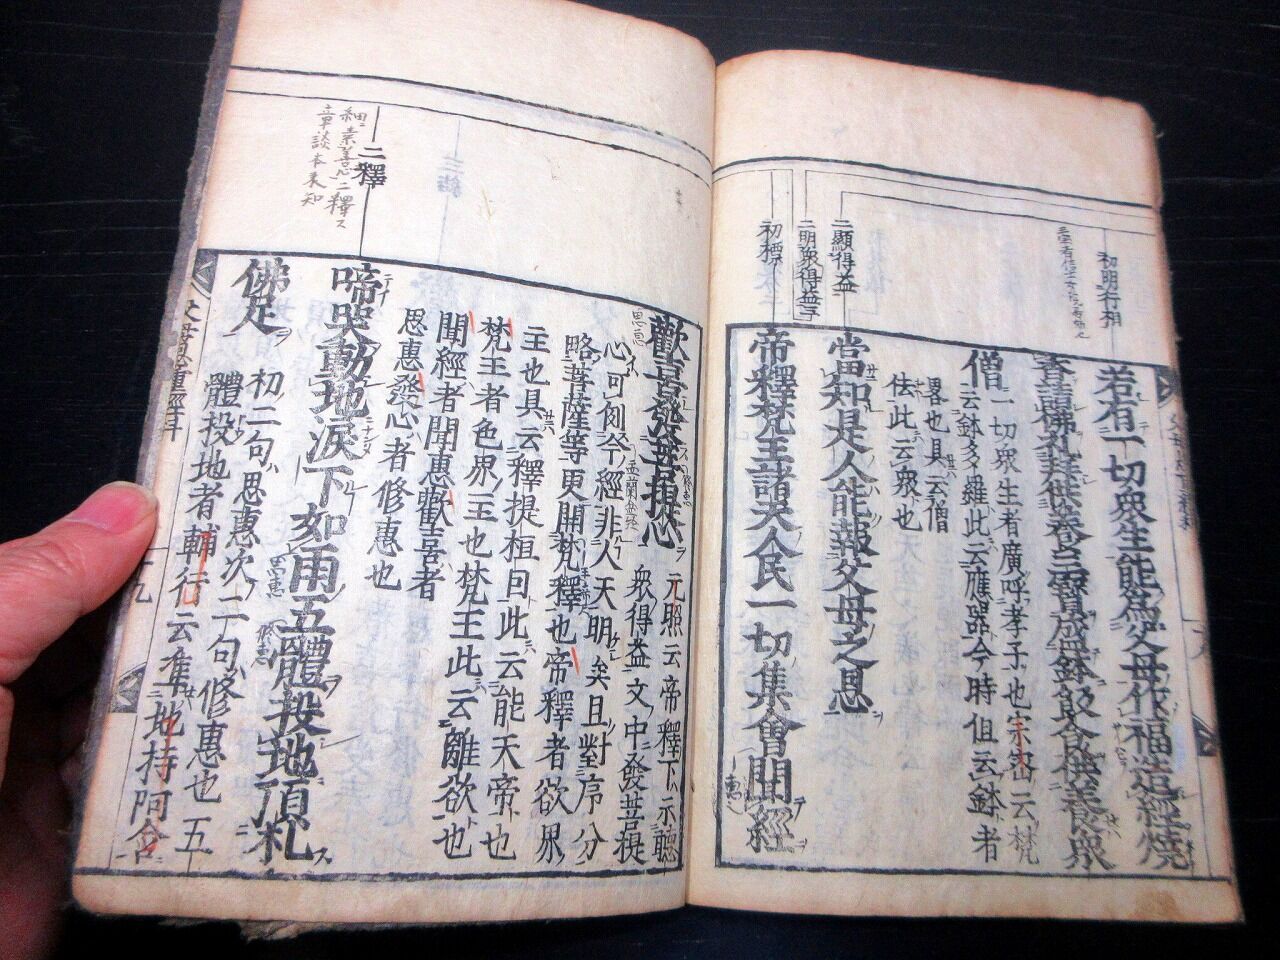 初明行相
若有一切衆生能爲父母作福造經燒
香請佛礼拜供養三寶或飯食供養衆
僧
一切衆生者廣呼孝子也宗密云梵
云鉢多羅此云應器今時但云鉢者
畧也具云僧
佉此云衆也
二顯得益
當知是人能報父母之恩
二明衆得益二
初標
帝釋梵王諸天人民一切集會聞經
歡喜發菩提心
元照云帝釋下示聽
衆得益文中發菩提
心可例今經非人天明矣且對序分
略菩薩等更開梵釋也帝釋者欲界
主也具云釋提桓因此云能天帝也
梵王者色界主也梵王此云離欲也
聞經者聞惠歡喜者
思惠發心者修惠也
二釋
啼哭動地淚下如雨五體投地頂礼
佛足
初二句思惠次二句修惠也五
體投地者輔行云準地持阿含
父母恩重經
十九